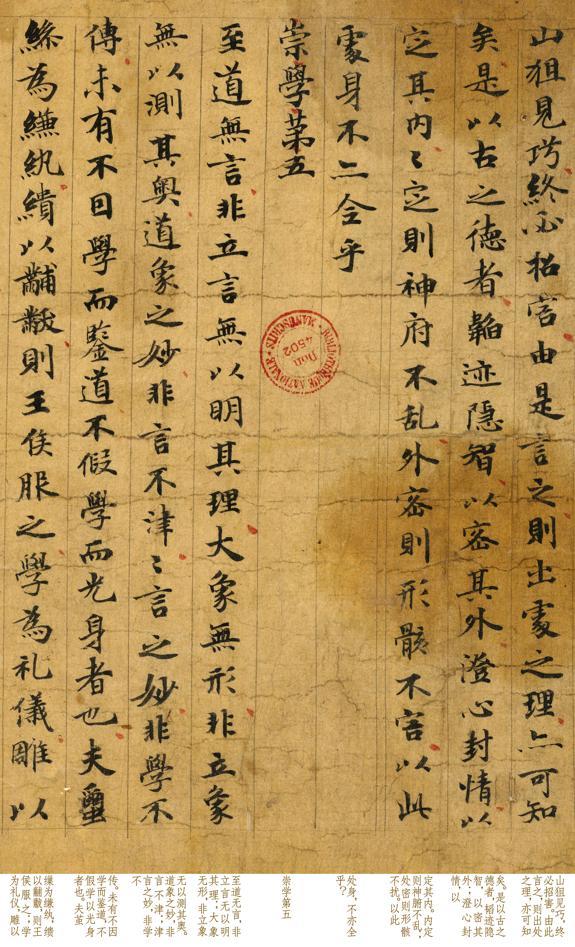 山狙見巧終必招害由是言之則出處之理亦可知
矣是以古之德者韜迹隱智以密其外澄心封情以
定其内〻定則神府不乱外密則形骸不害以此
處身不亦全乎
崇學第五
至道無言非立言無以明其理大象無形非立象
無以測其奥道象之妙非言不津〻言之妙非學不
傳未有不因學而鑒道不假學而光身者也夫蠒
絲為縑紈繢以黼黻則王侯服之學為礼儀雕以
BIBLIOTHÈQUE NATIONALE MANUSCRITS
4502
山狙见巧，终
必招害。由此
言之，则出处
之理，亦可知
矣。是以古之
德者，韬迹隐
智，以密其
外；澄心封
情，以
定其内。内定
则神腑不乱，
处密则形骸
不扰。以此
处身，不亦全
乎？
崇学第五
至道无言，非
立言无以明
其理；大象
无形，非立象
无以测其奥。
道象之妙，非
言不津；津
言之妙，非学
不
传。未有不因
学而鉴道，不
假学以光身
者也。夫茧
缲为缣纨，缋
以黼黻，则王
侯服之；学
为礼仪，雕以